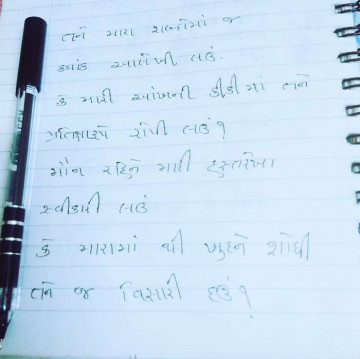 તને મારા શબ્દોમાં જ
ક્યાંક આલેખી લઉં.
કે મારી આંખની કીકીમાં તને
પ્રતિક્ષારૂપે રોપી લઉં?
મૌન રહિને મારી હસ્તરેખા
સ્વીકારી લઉં
કે મારામાં થી ખુદને શોધી
તને જ વિસારી દઉં?